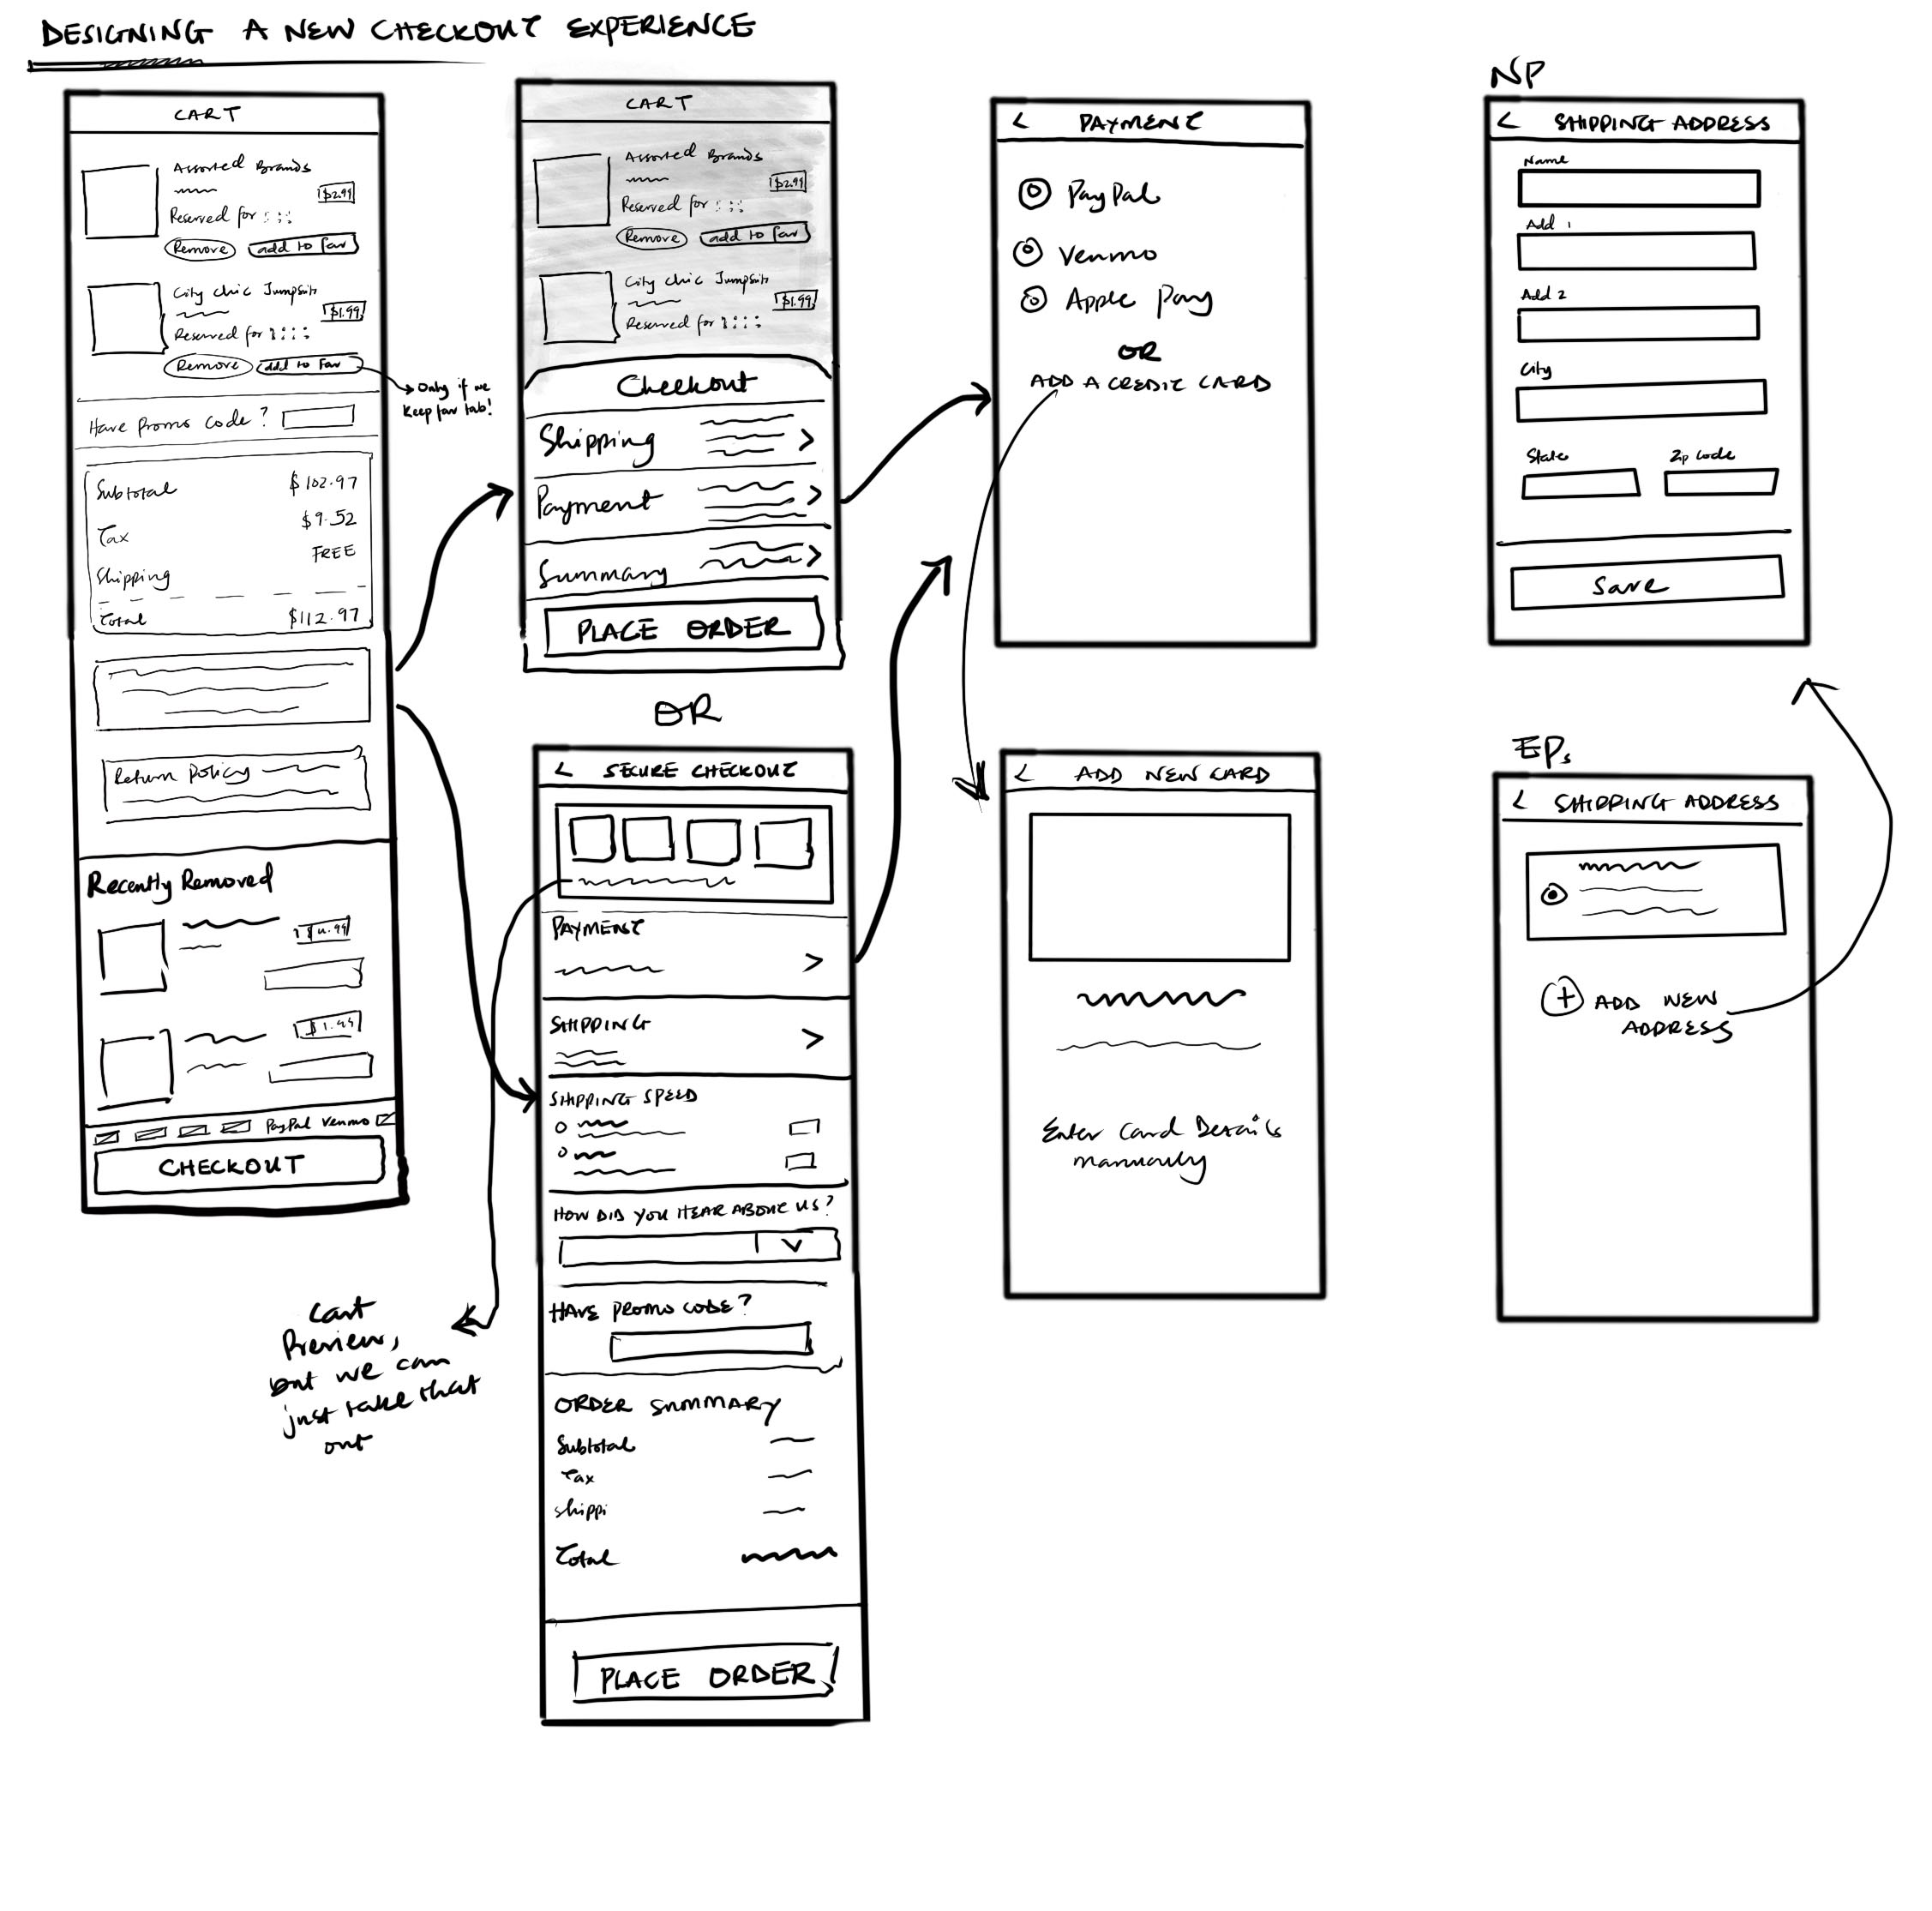 DESIGNING A NEW CHECKOUT EXPERIENCE
CART
Assorted Brands
$2.99
Reserved for : : :
Remove
add to fav
City Chic Jumpsuit
$1.99
Reserved for : : : :
Remove
add to fav
Only if we
keep fav tab!
Have promo code?
Subtotal $102.97
Tax $9.52
Shipping FREE
Total $112.97
Return policy
Recently Removed
$1.99
PayPal Venmo
CHECKOUT
CART
Assorted Brands
$2.99
Reserved for : : :
Remove
add to fav
City Chic Jumpsuit
$1.99
Reserved for : : : :
Checkout
Shipping >
Payment >
Summary >
PLACE ORDER
OR
< SECURE CHECKOUT
PAYMENT
>
SHIPPING
>
SHIPPING SPEED
HOW DID YOU HEAR ABOUT US?
HAVE PROMO CODE?
ORDER SUMMARY
Subtotal
Tax
shippi
Total
PLACE ORDER
Cart
Preview,
but we can
just take that
out
< PAYMENT
PayPal
Venmo
Apple Pay
OR
ADD A CREDIT CARD
< ADD NEW CARD
Enter Card Details
manually
NP
< SHIPPING ADDRESS
Name
Add 1
Add 2
City
State Zip Code
Save
EPs
< SHIPPING ADDRESS
+ ADD NEW
ADDRESS